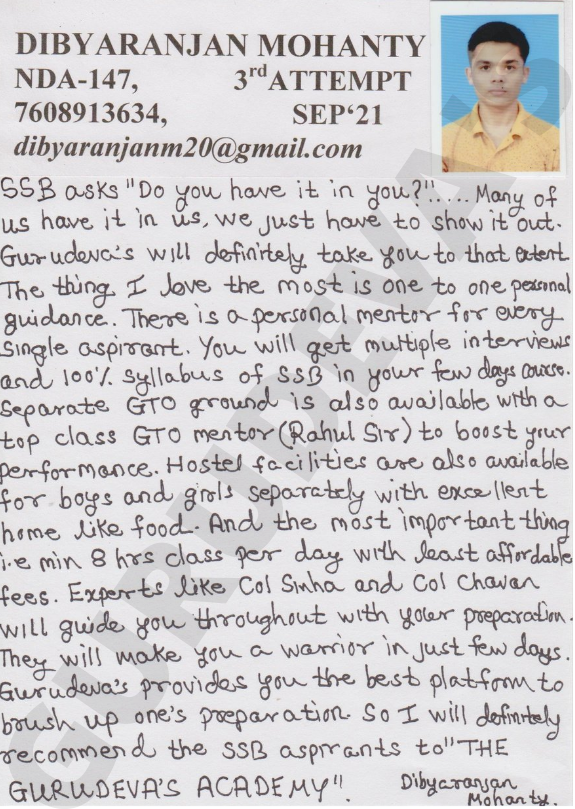 DIBYARANJAN MOHANTY
NDA-147, 3rd ATTEMPT
7608913634, SEP‘21
dibyaranjanm20@gmail.com
SSB asks "Do you have it in you?"..... Many of
us have it in us, we just have to show it out.
Gurudeva's will definitely take you to that extent.
The thing I love the most is one to one personal
guidance. There is a personal mentor for every
single aspirant. You will get multiple interviews
and 100% syllabus of SSB in your few days course.
Separate GTO ground is also available with a
top class GTO mentor (Rahul Sir) to boost your
performance. Hostel facilities are also available
for boys and girls separately with excellent
home like food. And the most important thing
i.e min 8 hrs class per day with least affordable
fees. Experts like Col Sinha and Col Chavan
will guide you throughout with your preparation.
They will make you a warrior in just few days.
Gurudeva's provides you the best platform to
brush up one's preparation. So I will definitely
recommend the SSB aspirants to "THE
GURUDEVA'S ACADEMY".
Dibyaranjan
Mohanty.
GURUDEVAS